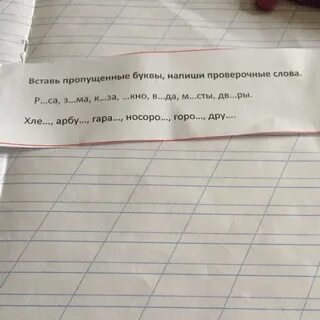 Вставь пропущенные буквы, напиши проверочные слова.
Р...са, з...ма, к...за, ...кно, в...да, м...сты, дв...ры.
Хле..., арбу..., гара..., носоро..., горо..., дру....